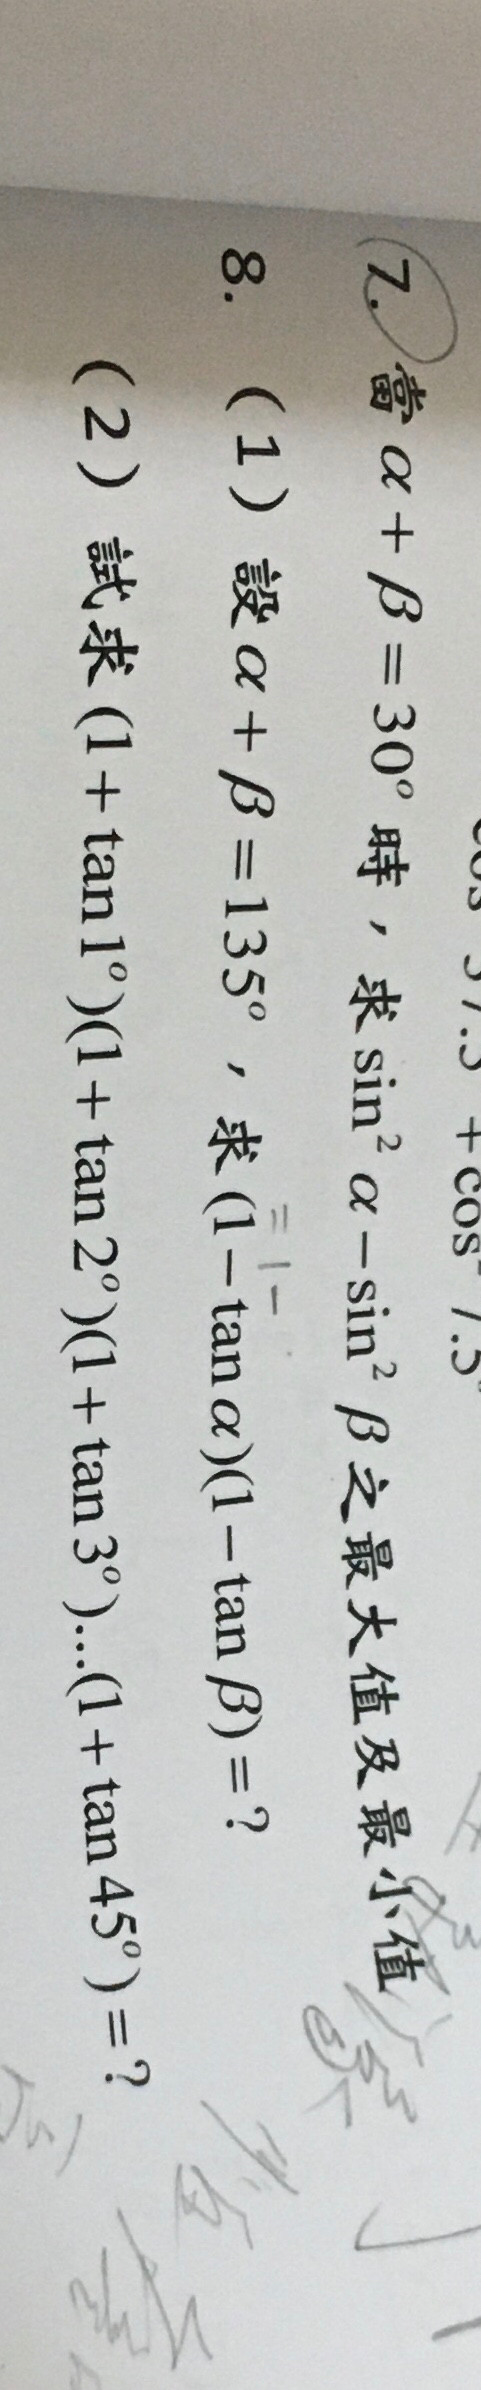 7. 當 α + β = 30° 時，求 sin² α − sin² β 之最大值及最小值
8. (1) 設 α + β = 135°，求 (1 − tan α)(1 − tan β) = ?
= 1 −
(2) 試求 (1 + tan 1°)(1 + tan 2°)(1 + tan 3°)…(1 + tan 45°) = ?